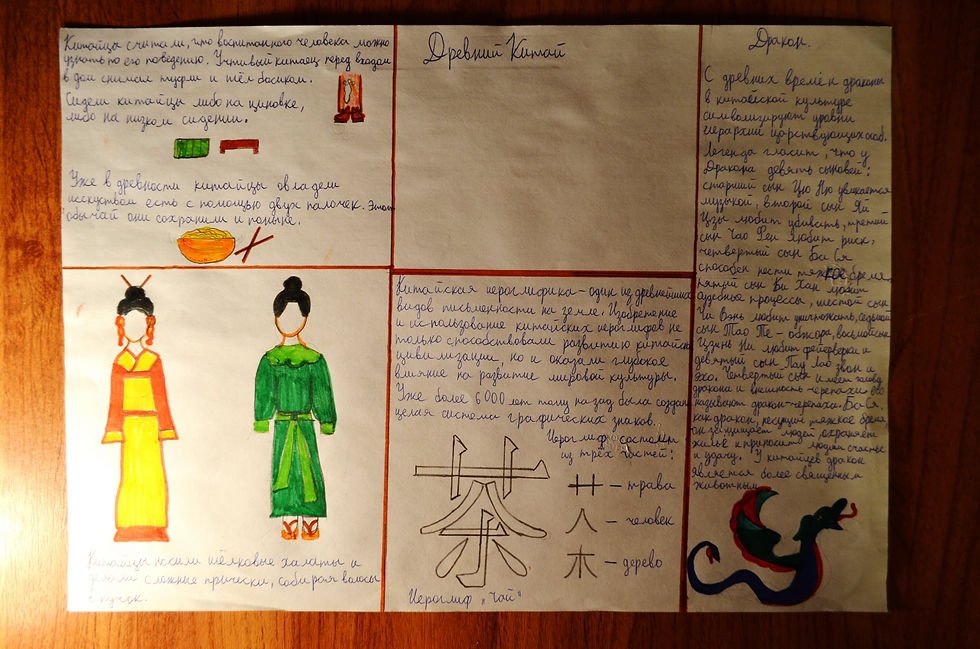 Китайцы считали, что воспитанного человека можно
узнать по его поведению. Учтивый китаец перед входом
в дом снимал туфли и шёл босиком.
Сидели китайцы либо на циновке,
либо на низком сидении.
Уже в древности китайцы овладели
исскуством есть с помощью двух палочек. Этот
обычай они сохранили и поныне.
Китайцы носили шёлковые халаты и
делали сложные прически, собирая волосы
в пучок.
Древний Китай
Китайская иероглифика - один из древнейших
видов письменности на земле. Изобретение
и использование китайских иероглифов не
только способствовали развитию китайской
цивилизации но и оказали глубокое
влияние на развитие мировой культуры.
Уже более 6000 лет тому назад была создана
целая система графических знаков.
Иероглиф состоит
из трёх частей:
茶
艹 - трава
人 - человек
木 - дерево
Иероглиф "Чай"
Дракон.
С древних времён драконы
в китайской культуре
символизируют уровни
иерархии царствующих особ.
Легенда гласит, что у
Дракона девять сыновей:
старший сын Цю Ню увлекается
музыкой, второй сын Яй
Цзы любит убивать, третий
сын Чао Фен любит риск,
четвертый сын Би Ся
способен нести тяжкое бремя,
пятый сын Би Хан любит
судебные процессы, шестой сын
Чи Вэнь любит уничтожать, седьмой
сын Тао Те - обжора, восьмой сын
Цзинь Ни любит фейерверки и
девятый сын Пау Лао звон и
эхо. Четвертый сын имеет голову
дракона и внешность черепахи его
называют дракон-черепаха. Би Ся,
как дракон, несущий тяжкое бремя,
он защищает людей, охраняет
жильё и приносит людям счастье
и удачу. У китайцев дракон
является более священным
животным.